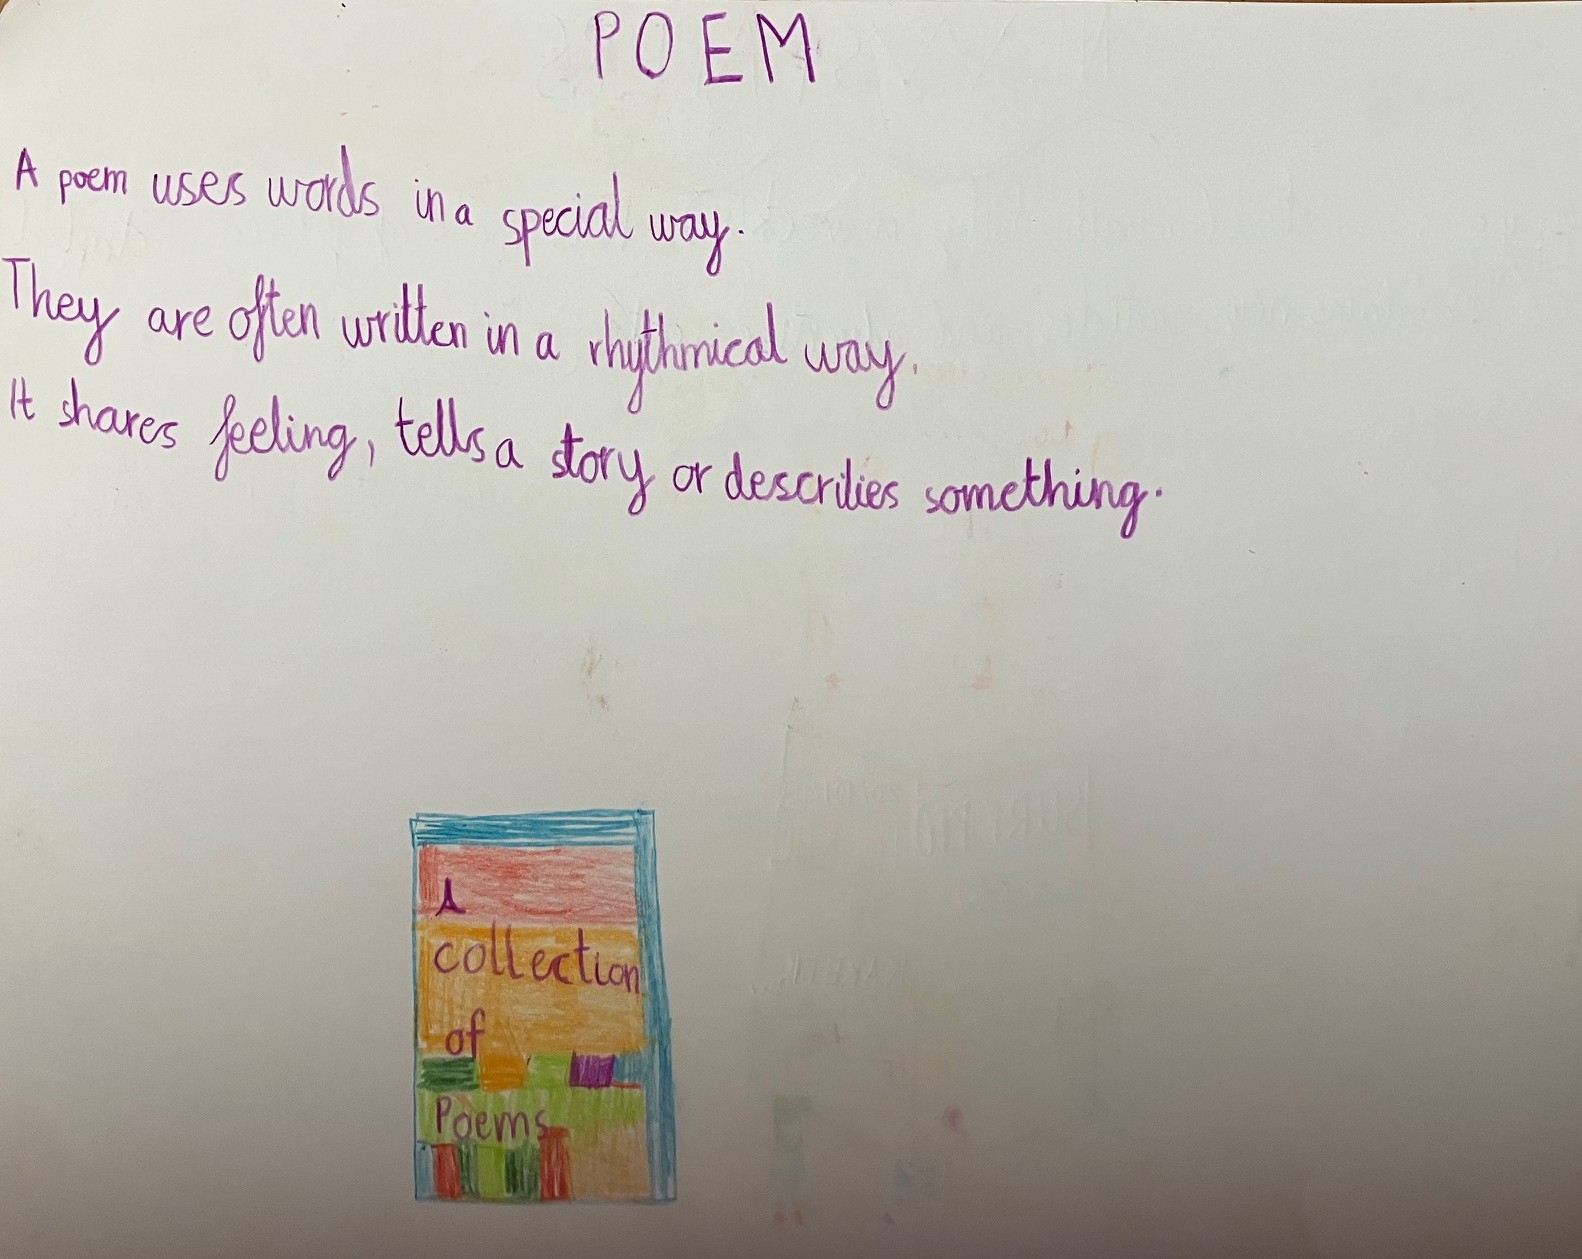 POEM
A poem uses words in a special way.
They are often written in a rhythmical way.
It shares feeling, tells a story or describes something.
A
collection
of
Poems